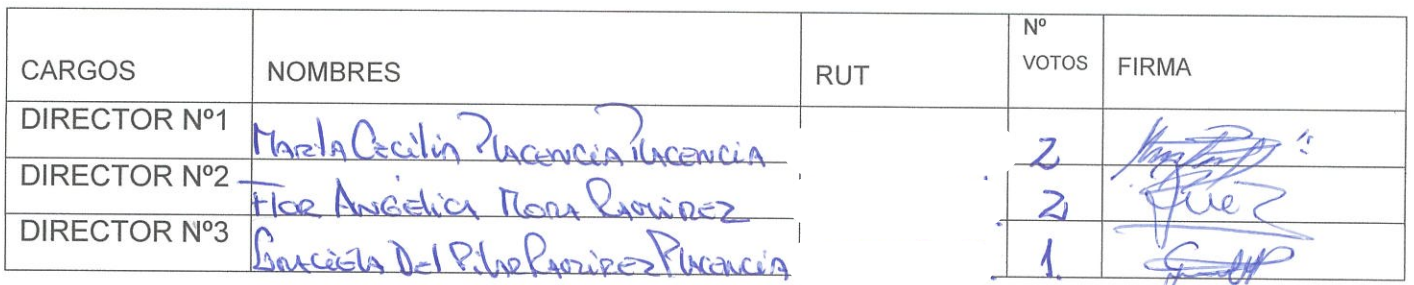 CARGOS NOMBRES RUT Nº VOTOS FIRMA
DIRECTOR Nº1 María Cecilia Placencia Placencia 2
DIRECTOR Nº2 Flor Angélica Mora Ramírez 2
DIRECTOR Nº3 Graciela Del Pilar Ramírez Placencia 1